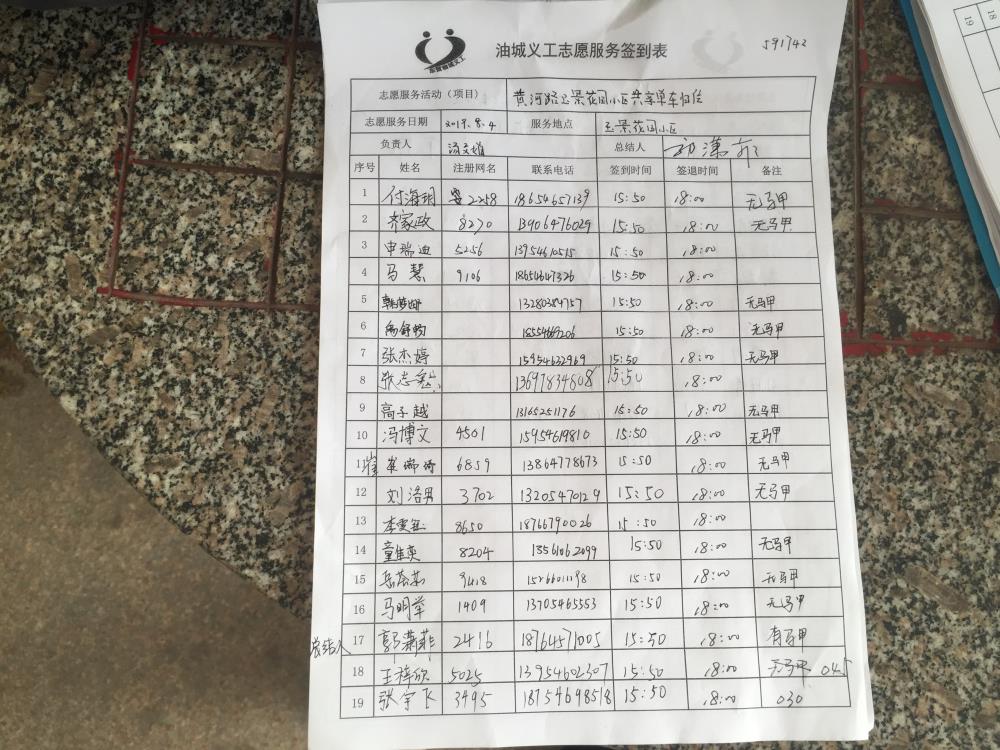 油城义工志愿服务签到表
591742
东营油城义工
志愿服务活动（项目） 黄河路玉景花园小区共享单车归位
志愿服务日期 2019.8.4 服务地点 玉景花园小区
负责人 总结人
序号 姓名 注册网名 联系电话 签到时间 签退时间 备注
1 付海玥 2258 18654657139 15:50 18:00 无马甲
2 齐家政 8270 13906476029 15:50 18:00 无马甲
3 申瑞迪 5256 13954610515 15:50 18:00
4 马慧 9106 18654647326 15:50 18:00
5 13280384757 15:50 18:00 无马甲
6 18554669206 15:50 18:00 无马甲
7 张杰婷 15954632969 15:50 18:00 无马甲
8 张志 13697834808 15:50 18:00
9 高子越 13165251176 15:50 18:00 无马甲
10 冯博文 4501 15954619810 15:50 18:00 无马甲
11 崔 6859 13864778673 15:50 18:00 无马甲
12 刘洛男 3702 13205470129 15:50 18:00 无马甲
13 李雯钰 8650 18766790026 15:50 18:00
14 童佳奕 8204 18561062099 15:50 18:00 无马甲
15 9418 15266011198 15:50 18:00 无马甲
16 马明举 1409 13705465553 15:50 18:00 无马甲
总结人 17 郭潇菲 2416 18764571005 15:50 18:00 有马甲
18 王梓欣 5025 13954602307 15:50 18:00 无马甲 045
19 张宇飞 3495 18754698518 15:50 18:00 030
18
19